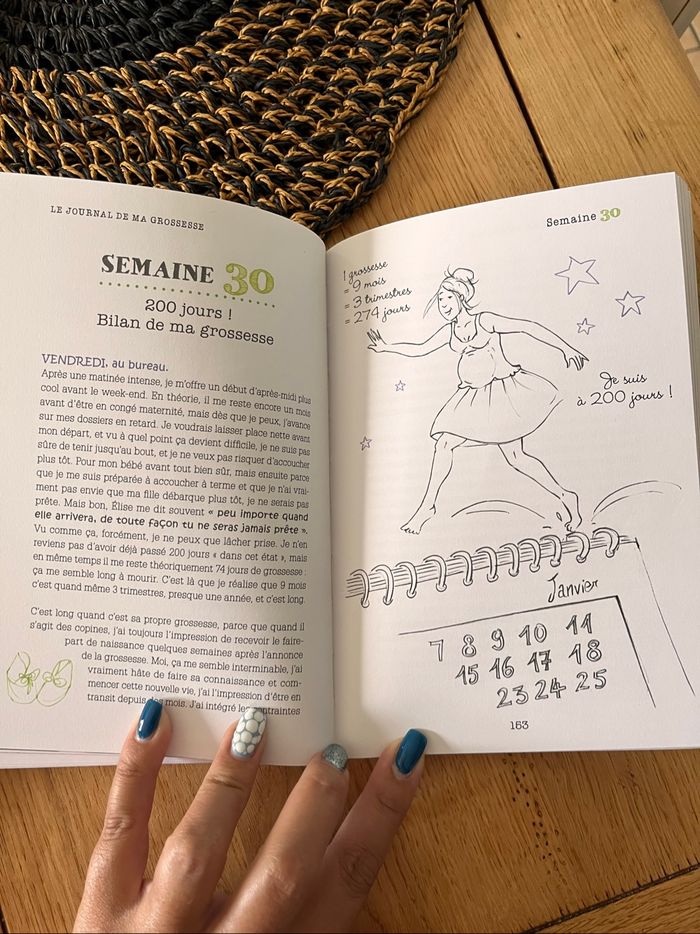 LE JOURNAL DE MA GROSSESSE
SEMAINE 30
200 jours !
Bilan de ma grossesse
VENDREDI, au bureau.
Après une matinée intense, je m'offre un début d'après-midi plus
cool avant le week-end. En théorie, il me reste encore un mois
avant d'être en congé maternité, mais dès que je peux, j'avance
sur mes dossiers en retard. Je voudrais laisser place nette avant
mon départ, et vu à quel point ça devient difficile, je ne suis pas
sûre de tenir jusqu'au bout, et je ne veux pas risquer d'accoucher
plus tôt. Pour mon bébé avant tout bien sûr, mais ensuite parce
que je me suis préparée à accoucher à terme et que je n'ai vrai-
ment pas envie que ma fille débarque plus tôt, je ne serais pas
prête. Mais bon, Élise me dit souvent « peu importe quand
elle arrivera, de toute façon tu ne seras jamais prête ».
Vu comme ça, forcément, je ne peux que lâcher prise. Je n'en
reviens pas d'avoir déjà passé 200 jours « dans cet état », mais
en même temps il me reste théoriquement 74 jours de grossesse :
ça me semble long à mourir. C'est là que je réalise que 9 mois
c'est quand même 3 trimestres, presque une année, et c'est long.
C'est long quand c'est sa propre grossesse, parce que quand il
s'agit des copines, j'ai toujours l'impression de recevoir le faire-
part de naissance quelques semaines après l'annonce
de la grossesse. Moi, ça me semble interminable, j'ai
vraiment hâte de faire sa connaissance et com-
mencer cette nouvelle vie, j'ai l'impression d'être en
transit depuis des mois. J'ai intégré les contraintes
Semaine 30
1 grossesse
= 9 mois
= 3 trimestres
= 274 jours
Je suis
à 200 jours !
Janvier
7 8 9 10 11
15 16 17 18
23 24 25
163